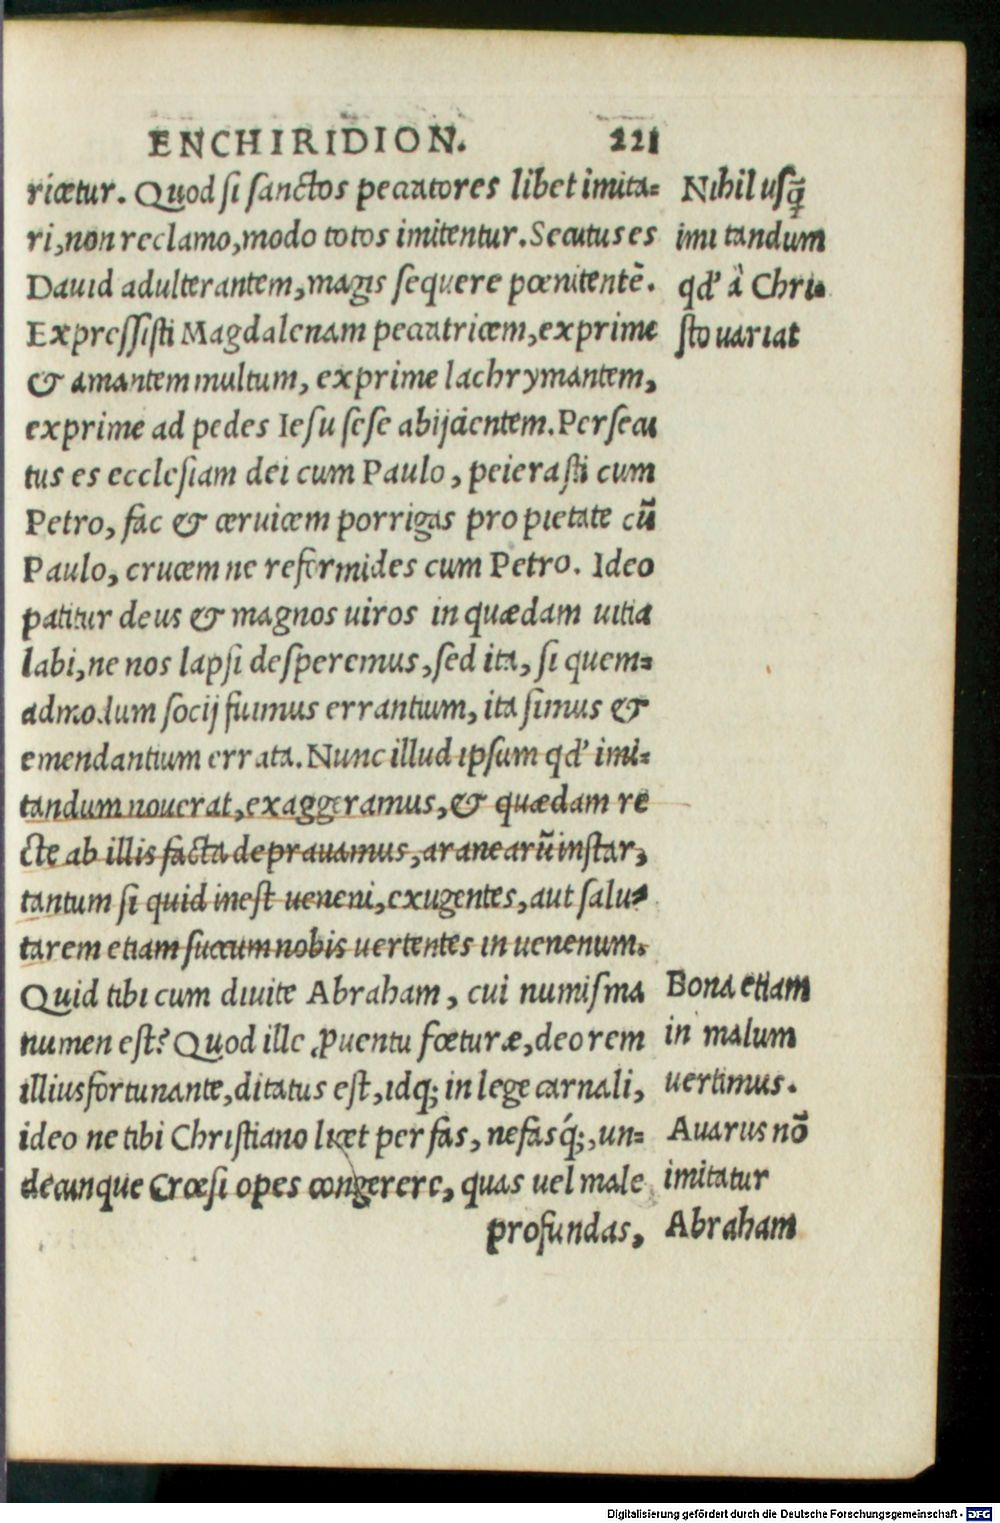 ENCHIRIDION. 221
ricetur. Quod si sanctos peccatores libet imita=
ri, non reclamo, modo totos imitentur. Secutus es
Dauid adulterantem, magis sequere pœnitentē.
Expressisti Magdalenam peccatricem, exprime
& amantem multum, exprime lachrymantem,
exprime ad pedes Iesu sese abijcientem. Persecu
tus es ecclesiam dei cum Paulo, peierasti cum
Petro, fac & ceruicem porrigas pro pietate cū
Paulo, crucem ne reformides cum Petro. Ideo
patitur deus & magnos uiros in quædam uitia
labi, ne nos lapsi desperemus, sed ita, si quem=
admodum socij fuimus errantium, ita simus &
emendantium errata. Nunc illud ipsum qd' imi=
tandum nouerat, exaggeramus, & quædam re
cte ab illis facta deprauamus, aranearū instar,
tantum si quid inest ueneni, exugentes, aut salu=
tarem etiam succum nobis uertentes in uenenum.
Quid tibi cum diuite Abraham, cui numisma
numen est? Quod ille ꝓuentu fœturæ, deo rem
illius fortunante, ditatus est, idq; in lege carnali,
ideo ne tibi Christiano licet per fas, nefasq́;, un=
decunque Crœsi opes congerere, quas uel male
profundas,
Nihil usq̄
imi tandum
qd' à Chri
sto uariat
Bona etiam
in malum
uertimus.
Auarus nō
imitatur
Abraham
Digitalisierung gefördert durch die Deutsche Forschungsgemeinschaft - DFG